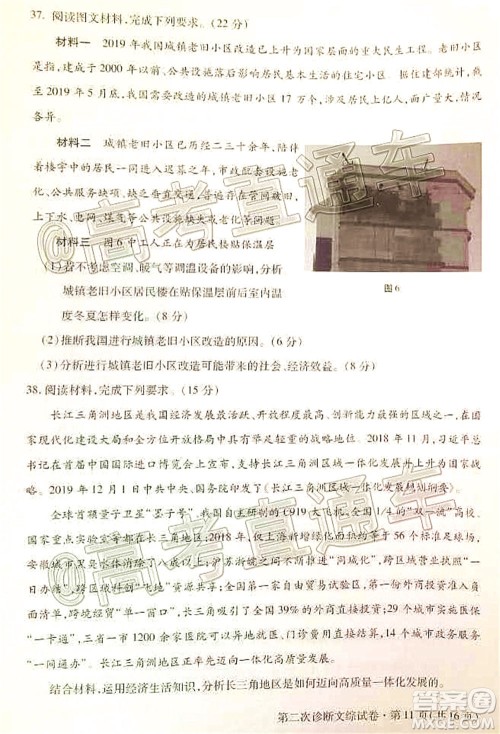 37. 阅读图文材料,完成下列要求。(22分)
材料一 2019年我国城镇老旧小区改造已上升为国家层面的重大民生工程。老旧
小区,多指建成于2000年以前、公共设施落后影响居民基本生活的住宅小区。据住建部统计,截
至2019年5月底,我国需要改造的城镇老旧小区17万个,涉及居民上亿人,面广量大,情况
各异。
材料二 城镇老旧小区已历经二三十余年,伴随
着楼宇中的居民一道进入迟暮之年,市政配套设施老
化、公共服务缺项、缺乏停车设施、普遍存在管网破旧,
上下水、电网、煤气等公共设施改造滞后等问题
材料三 图6中工人正在为居民楼贴保温层
(1)若不考虑空调、暖气等调温设备的影响,分析
城镇老旧小区居民楼在贴保温层前后室内温
度冬夏怎样变化。(8分)
图6
(2)推断我国进行城镇老旧小区改造的原因。(6分)
(3)分析进行城镇老旧小区改造可能带来的社会、经济效益。(8分)
38. 阅读材料,完成下列要求。(15分)
长江三角洲地区是我国经济发展最活跃、开放程度最高、创新能力最强的区域之一,在
国家现代化建设大局和全方位开放格局中有着举足轻重的战略地位。2018年11月,习近平总
书记在首届中国国际进口博览会上宣布,支持长江三角洲区域一体化发展并上升为国家战略。
2019年12月1日中共中央、国务院印发了《长江三角洲区域一体化发展规划纲要》。
全球首颗量子卫星“墨子号”、我国自主研制的C919大飞机、全国约1/4的“双一流”高校、
国家重点实验室、国家工程研究中心布局长三角;2018年,仅上海新增绿化面积约等于56个天
安门广场;连通沪苏浙皖的高铁成为城际“公交”;沪苏浙皖一道推进“同城化”,跨区域营业执照“一
网通”,跨区域社保“一卡通”;自由贸易试验区、21世纪海上丝绸之路核心区,外资准入“负面
清单”,跨境经贸“单一窗口”,长三角吸引了全国39%的外商投资;异地就医门诊费用直接结算“
一卡通”,三省一市1200余家异地养老机构开通服务“一键通”,51个政务服务事项
“一网通办”。长江三角洲地区正率先实现更高质量的一体化发展。
结合材料,运用经济生活知识,分析长三角地区是如何推进更高质量的一体化发展的。
第二次诊断文综试卷·第11页(共16页)
@高考直通车
@高考直通车
答案圈